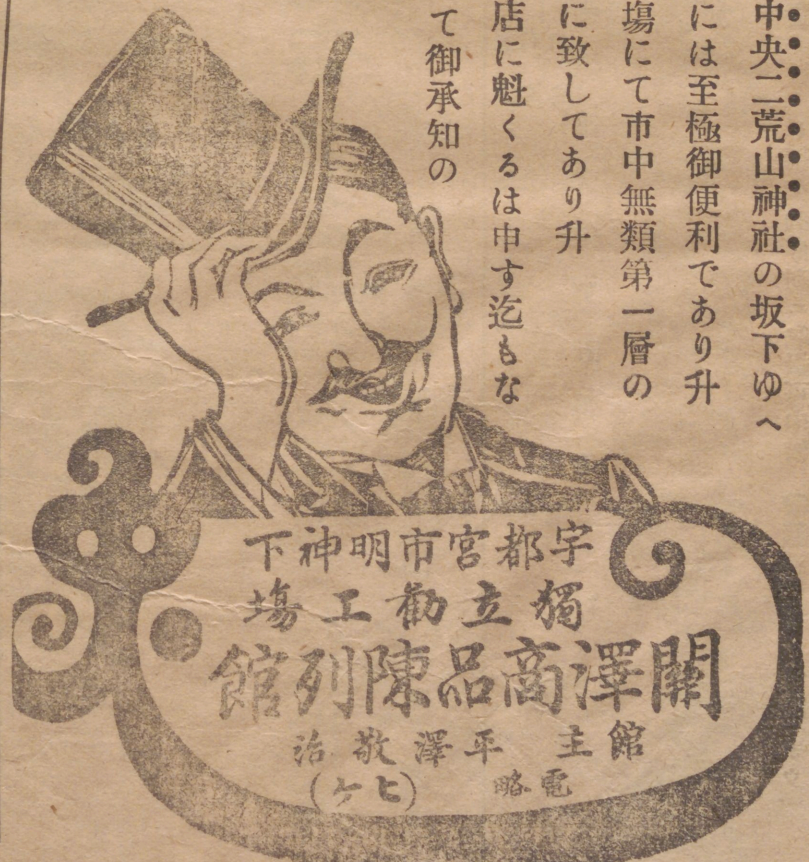 中央二荒山神社の坂下ゆへ
には至極御便利であり升
塲にて市中無類第一層の
に致してあり升
店に魁くるは申す迄もな
て御承知の
宇都宮市明神下
獨立勸工塲
關澤商品陳列館
館主 平澤敬治
電略 (ヒケ)